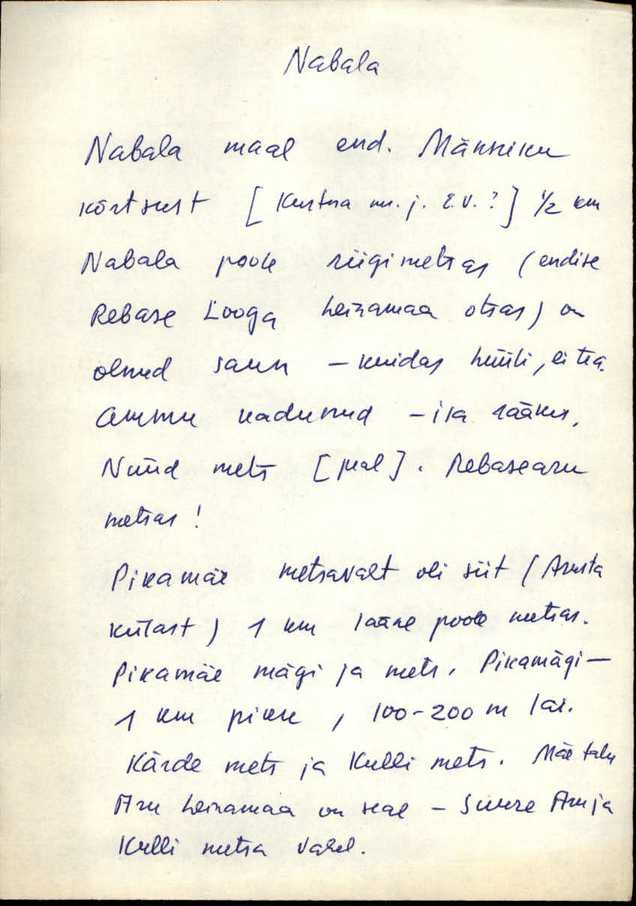 Nabala
Nabala maal end. Männiku
kõrtsust [Kurtna m. j. E.V.?] 1/2 km
Nabala poole riigimetsas (endise
Rebase Looga heinamaa otsas) on
olnud saun – kuidas hüüti, ei tea.
Ammu kadunud – isa rääkis.
Nüüd mets [peal]. Rebasearu
metsas!
Pikamäe metsavaht oli siit (Arusta
külast) 1 km lääne poole metsas.
Pikamäe mägi ja mets. Pikamägi –
1 km pikk, 100-200 m lai.
Kärde mets ja Kulli mets. Mäe talu
Aru heinamaa on seal – Suure Aru ja
Kulli metsa vahel.